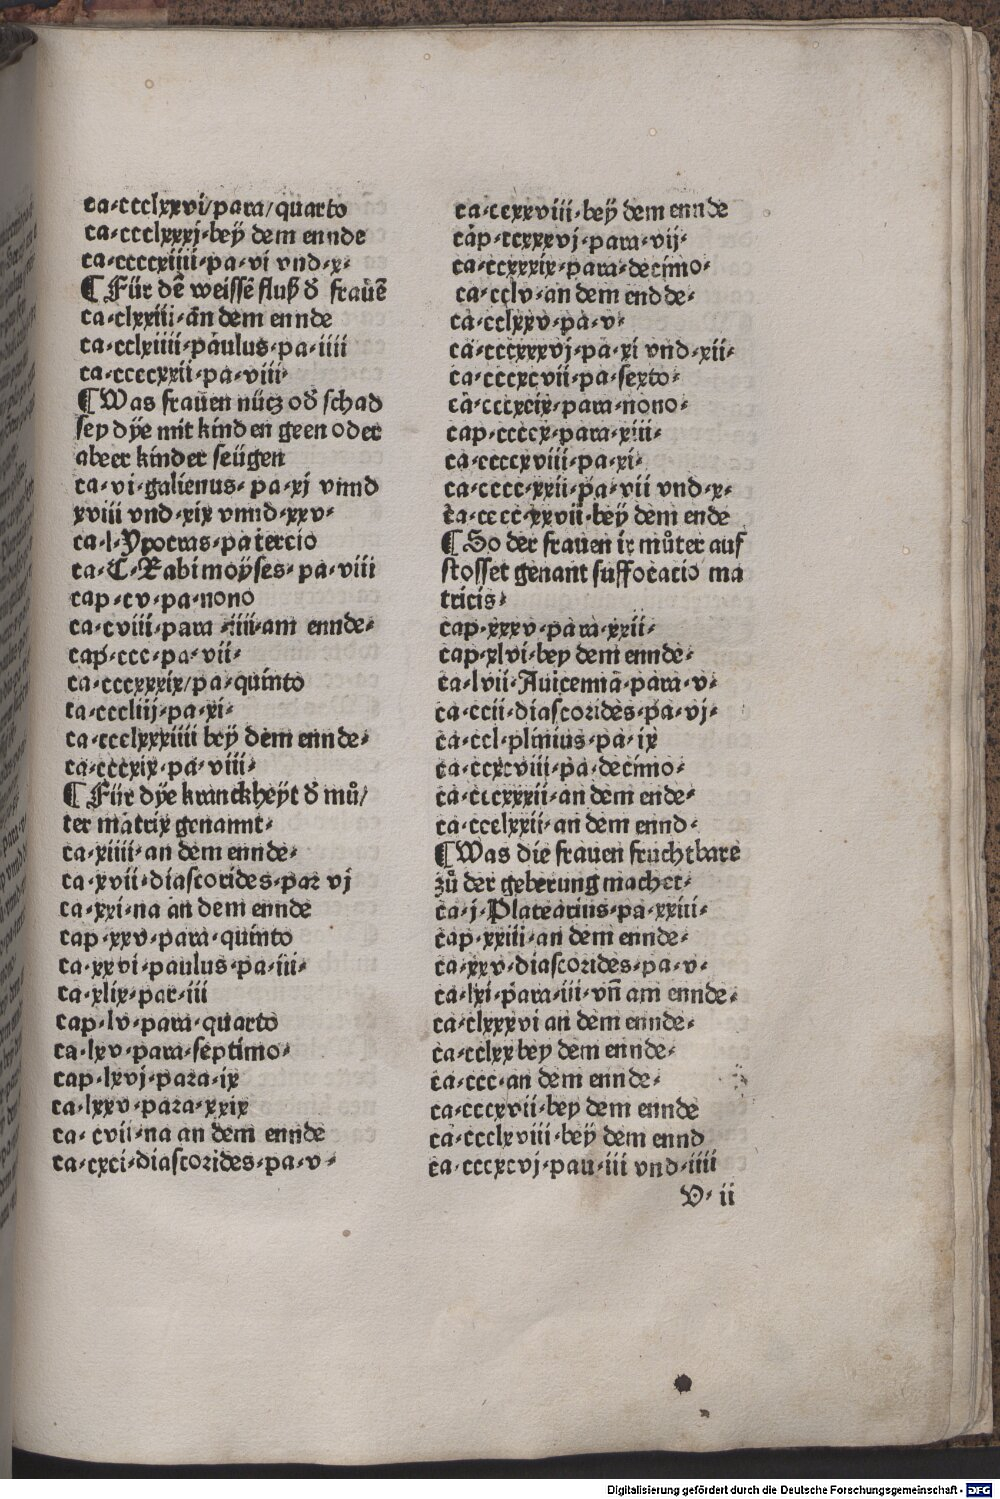 ca·ccclxxvi/para/quarto
ca·ccclxxxj·beÿ dem ennde
ca·ccccxiiii·pa·vi vnd·x·
¶ Für dē weissē fluß ď fraüē
ca·clxxiii·an dem ennde
ca·cclxiiii·paulus·pa·iiii
ca·ccccxxii·pa·viii·
¶Was fraüen nütz oď schad
sey dÿe mit kinden geen oder
abeer kinder seügen
ca·vi·galienus·pa·xj vnnd
xviii vnd·xix vnnd·xxv·
ca·l·Ypocras·pa tercio
ca·C·Rabi moÿses·pa·viii
cap·cv·pa·nono
ca·cviii·para·iiii·am ennde·
cap·ccc·pa·vii·
ca·cccxxxix/pa·quinto
ca·cccliij·pa·xi·
ca·ccclxxxiiii beÿ dem ennde·
ca·cccxix·pa·viii·
¶ Für dÿe kranckheÿt ď mů/
ter matrix genannt·
ca·xiiii·an dem ennde·
ca·xvii·diascorides·par vj
ca·xxi·na an dem ennde
cap·xxv·para·quinto
ca·xxvi·paulus·pa·iii·
ca·xlix·par·iii
cap·lv·para·quarto
ca·lxv·para·septimo·
cap·lxvj·para·ix
ca·lxxv·para·xxix
ca·cvii·na an dem ennde
ca·cxci·diascorides·pa·v·
ca·ccxxviii·beÿ dem ennde
cap·ccxxxvj·para·vij·
ca·ccxxxix·para·decimo·
ca·cclv·an dem endde·
ca·cclxxv·pa·v·
ca·cccxxxvj·pa·xi vnd·xii·
ca·cccxcvii·pa·sexto·
ca·cccxcix·para·nono·
cap·ccccx·para·xiii·
ca·ccccxviii·pa·xi·
ca·cccc·xxii·pa·vii vnd·x·
ca·cccc·xxvii·beÿ dem ende
¶ So der frauen ir můter auf
stosset genant suffocacio ma
tricis·
cap·xxxv·para·xxii·
cap·xlvi·bey dem ennde·
ca·lvii·Auicenna·para·v·
ca·ccii·diascorides·pa·vj·
ca·ccl·plinius·pa·ix
ca·ccxcviii·pa·decimo·
ca·cccxxxii·an dem ende·
ca·ccclxxii·an dem ennd·
¶Was die frauen fruchtbare
zů der geberung machet·
ca·j·Platearius·pa·xxiii·
cap·xxiiii·an dem ennde·
ca·xxv·diascorides·pa·v·
ca·lxi·para·iii·vn̄ am ennde·
ca·clxxxvi an dem ennde·
ca·cclxx bey dem ennde·
ca·ccc·an dem ennde·
ca·cccxvii·bey dem ennde
ca·ccclxviii·beÿ dem ennd
ca·cccxcvj·pau·iii vnd·iiii
V·ii
Digitalisierung gefördert durch die Deutsche Forschungsgemeinschaft - DFG